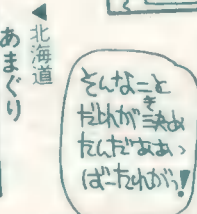 ◀北海道
あまぐり
そんなこと
だれが決め
たんだああい
ばーたれがっ!